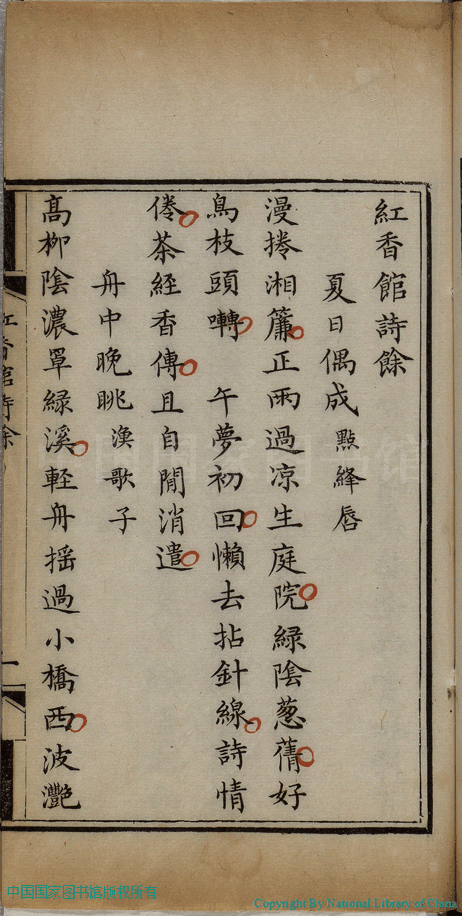 紅香館詩餘
夏日偶成 點絳唇
漫捲湘簾正雨過凉生庭院綠陰葱蒨好
鳥枝頭囀 午夢初回懶去拈針線詩情
倦茶經香傳且自閒消遣
舟中晚眺 漁歌子
高柳陰濃罩綠溪輕舟搖過小橋西波灧
紅香館詩餘
一
中国国家图书馆版权所有
Copyright By National Library of China